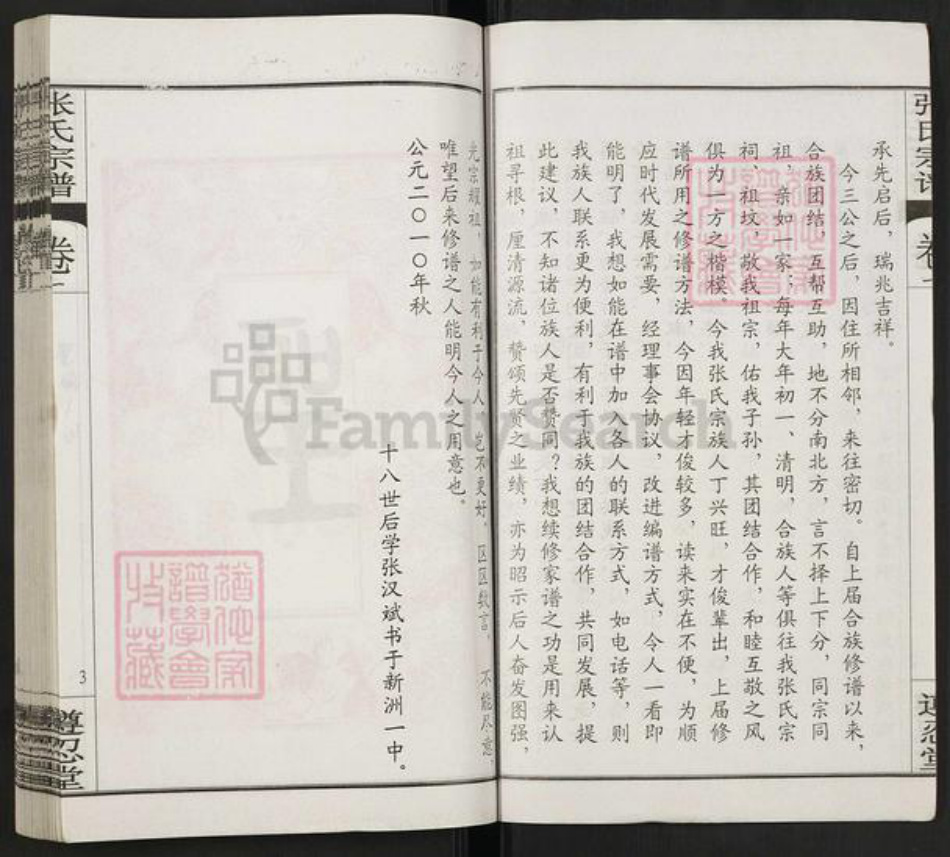 张氏宗谱
卷一
承先启后，瑞兆吉祥。
今三公之后，因住所相邻，来往密切。自上届合族修谱以来，
合族团结，互帮互助，地不分南北方，言不择上下分，同宗同
祖，亲如一家；每年大年初一、清明，合族人等俱往我张氏宗
祠、祖坟，敬我祖宗，佑我子孙，其团结合作，和睦互敬之风
俱为一方之楷模。今我张氏宗族人丁兴旺，才俊辈出，上届修
谱所用之修谱方法，今因年轻才俊较多，读来实在不便，为顺
应时代发展需要，经理事会协议，改进编谱方式，令人一看即
能明了，我想如能在谱中加入各人的联系方式，如电话等，则
我族人联系更为便利，有利于我族的团结合作，共同发展，提
此建议，不知诸位族人是否赞同？我想续修家谱之功是用来认
祖寻根，厘清源流，赞颂先贤之业绩，亦为昭示后人奋发图强，
光宗耀祖，如能有利于今人，岂不更好。区区数言，不能尽意，
唯望后来修谱之人能明今人之用意也。
十八世后学张汉斌书于新洲一中。
公元二〇一〇年秋
张氏宗谱
卷一
3
遵忍堂
遵忍堂
猶他家
譜學會
收藏
猶他家
譜學會
收藏
FamilySearch